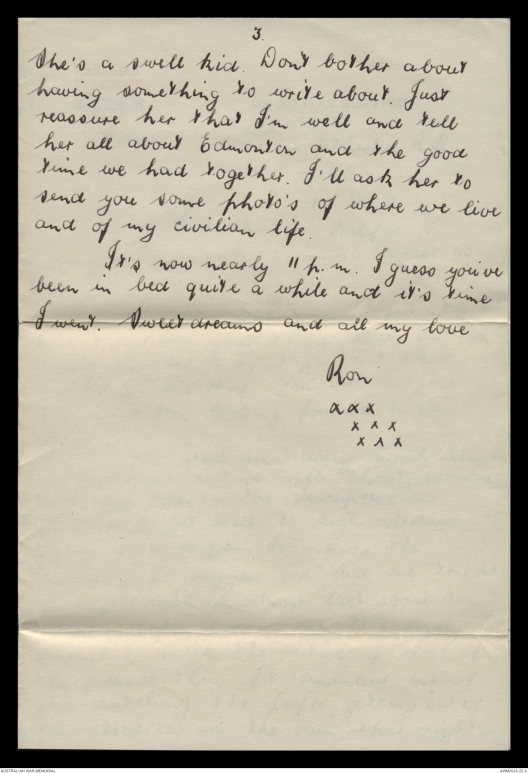 3.
She's a swell kid. Don't bother about
having something to write about. Just
reassure her that I'm well and tell
her all about Edmonton and the good
time we had together. I'll ask her to
send you some photo's of where we live
and of my civilian life.
It's now nearly 11 p.m. I guess you've
been in bed quite a while and it's time
I went. Sweet dreams and all my love
Ron
x x x
x x x
x x x
AUSTRALIAN WAR MEMORIAL